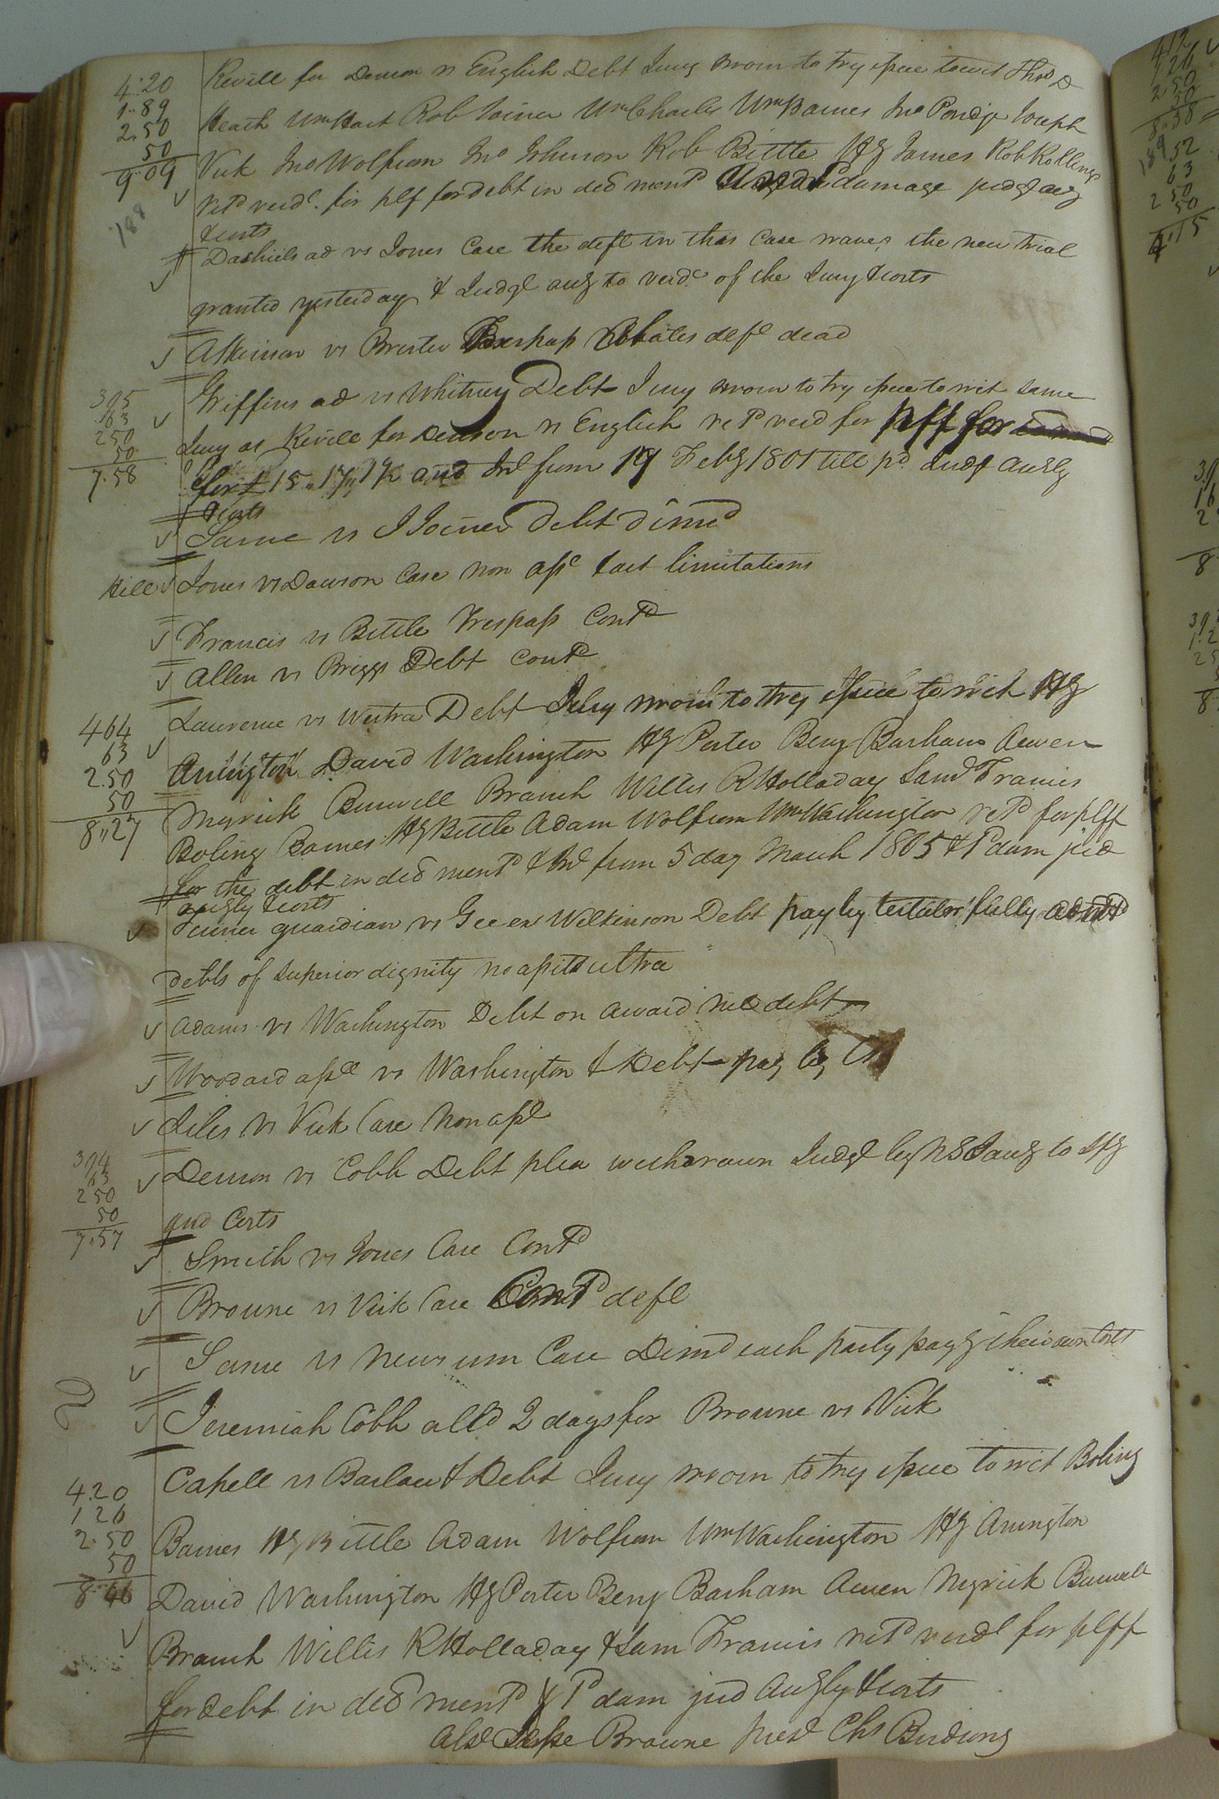 4.20 Revill for Denson vs English Debt Jury sworn to try issue towit Thos D
1.89 Heath Wm Hart Rob Joiner Wm Charles Wm Barnes Jno Pond jr Joseph
2.50
50 Vick Jno Wolfram Jno Johnson Rob Bittle HG James Rob Rollings
9.09 retd verdt. for plf for debt in decd mentd damage judgt accg
188
& costs
Dashiels ad vs Jones Case the deft in this Case waves the new trial
granted yesterday & Judgt accg to verdt of the Jury & costs
Atkinson vs Brister Trespass Abates deft dead
Griffins ad vs Whitney Debt Jury sworn to try issue to wit same
395
63
250
50
7.58
Jury as Revill for Denson vs English retd verd for plff for
for £15.17. and Int from 19 Feby 1801 till pd Judgt accgly
& Costs
Same vs J Joiner Debt dismd
Hill Jones vs Dawson Case non asst & act limitations
Francis vs Bittle Trespass Contd
Allen vs Briggs Debt Contd
464 Laurence vs Debt Jury sworn to try issue to wit HG
63
2.50
50
8.27
Arrington David Washington HG Porter Benj Barham Amen
Myrick Burwell Branch Willis R Holladay Saml Francis
Boling Barnes HG Bittle Adam Wolfram Wm Washington retd for plff
for the debt in decd mentd & Int from 5 day March 1805 & 1d dam jud
accgly & costs
guardian vs Gee ex Wilkinson Debt pay by testator fully admd
debts of superior dignity no assets ultra
Adams vs Washington Debt on award nil debt
Woodard assee vs Washington & Debt pay by
Liles vs Vick Case Non asst
394
63
250
50
7.57
Denson vs Cobb Debt plea withdrawn Judgt by NSJ accg to
and Costs
Smith vs Jones Case Contd
Browne vs Vick Case Contd deft
Same vs Newsum Case Dismd each party payg their own Costs
Jeremiah Cobb alld 2 days for Browne vs Vick
Capell vs Barlow & Debt Jury sworn to try issue to wit Boling
4.20
1 26
2.50
50
8.46
Barnes HG Bittle Adam Wolfram Wm Washington HG Arrington
David Washington HG Porter Benj Barham Amen Myrick Burwell
Branch Willis R Holladay & Sam Francis retd verdt for plff
for debt in decd mentd & 1d dam jud accgly & costs
Jesse Browne prest Chs Birdsong